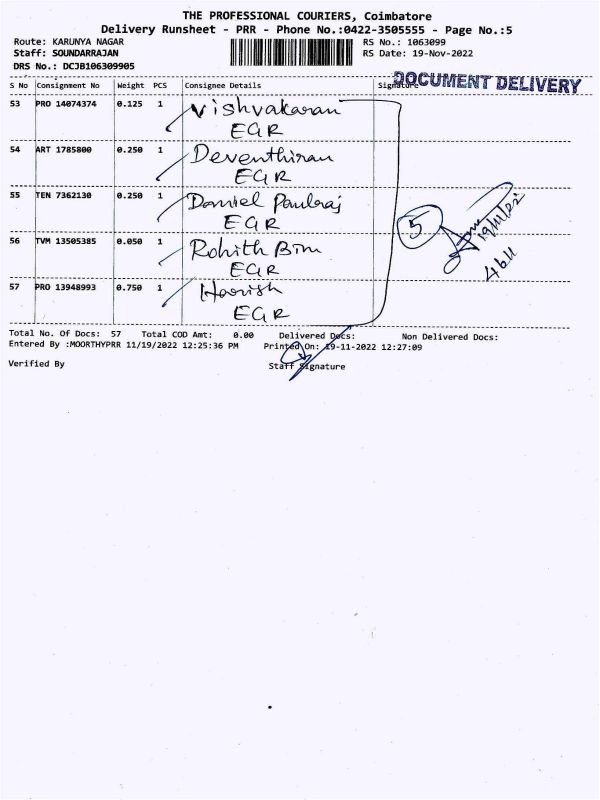 THE PROFESSIONAL COURIERS, Coimbatore
Delivery Runsheet - PRR - Phone No.:0422-3505555 - Page No.:5
Route: KARUNYA NAGAR
RS No.: 1063099
Staff: SOUNDARRAJAN
RS Date: 19-Nov-2022
DRS No.: DCJB106309905
DOCUMENT DELIVERY
S No Consignment No Weight PCS Consignee Details Signature
53 PRO 14074374 0.125 1 Vishvakaran
EGR
54 ART 1785800 0.250 1 Deventhiran
EGR
55 TEN 7362130 0.250 1 Daniel Paulraj
EGR
5
19/11/22
4611
56 TVM 13505385 0.050 1 Rohith Bim
EGR
57 PRO 13948993 0.750 1 Harish
EGR
Total No. Of Docs: 57 Total COD Amt: 0.00 Delivered Docs: Non Delivered Docs:
Entered By :MOORTHYPRR 11/19/2022 12:25:36 PM Printed On: 19-11-2022 12:27:09
Verified By Staff Signature